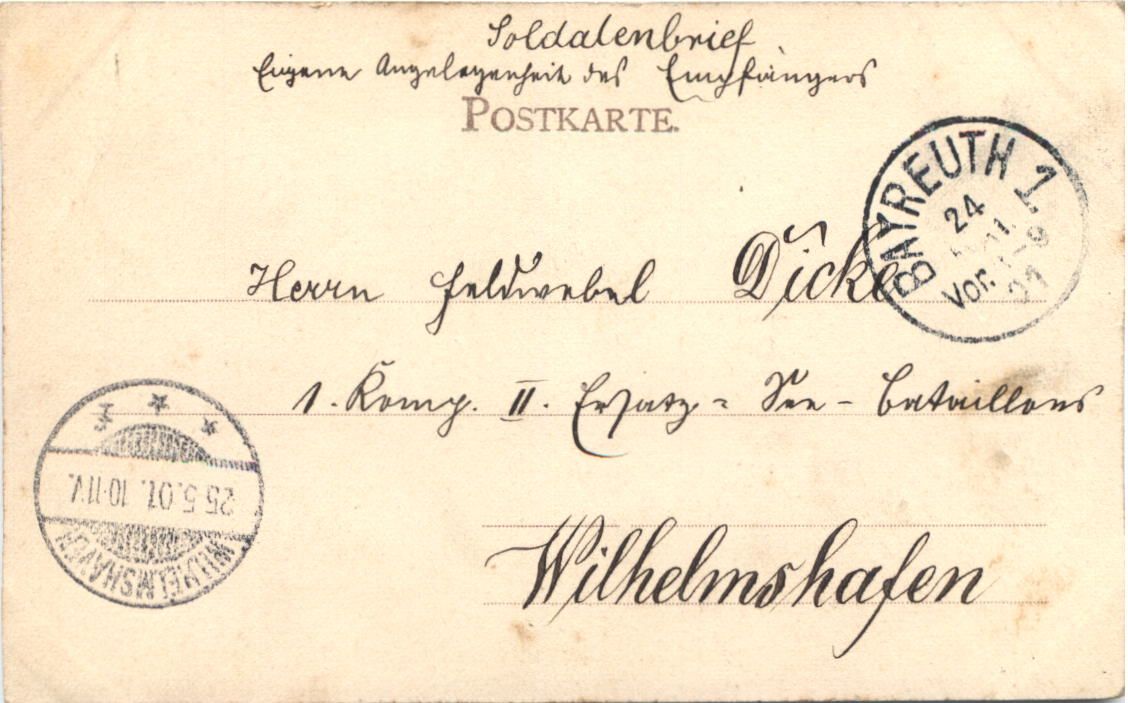 Soldatenbrief
Eigene Angelegenheit des Empfängers
POSTKARTE.
BAYREUTH 1.
24
Vor.
07
Herrn Feldwebel Dicke
1. Komp. II. Ersatz = See - Bataillons
Wilhelmshafen
25.5.07. 10-11 V.
WILHELMSHAVEN